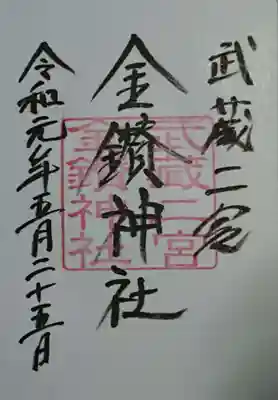 武蔵二宮
金鑚神社
令和元年五月二十五日
武蔵二宮
金鑚神社